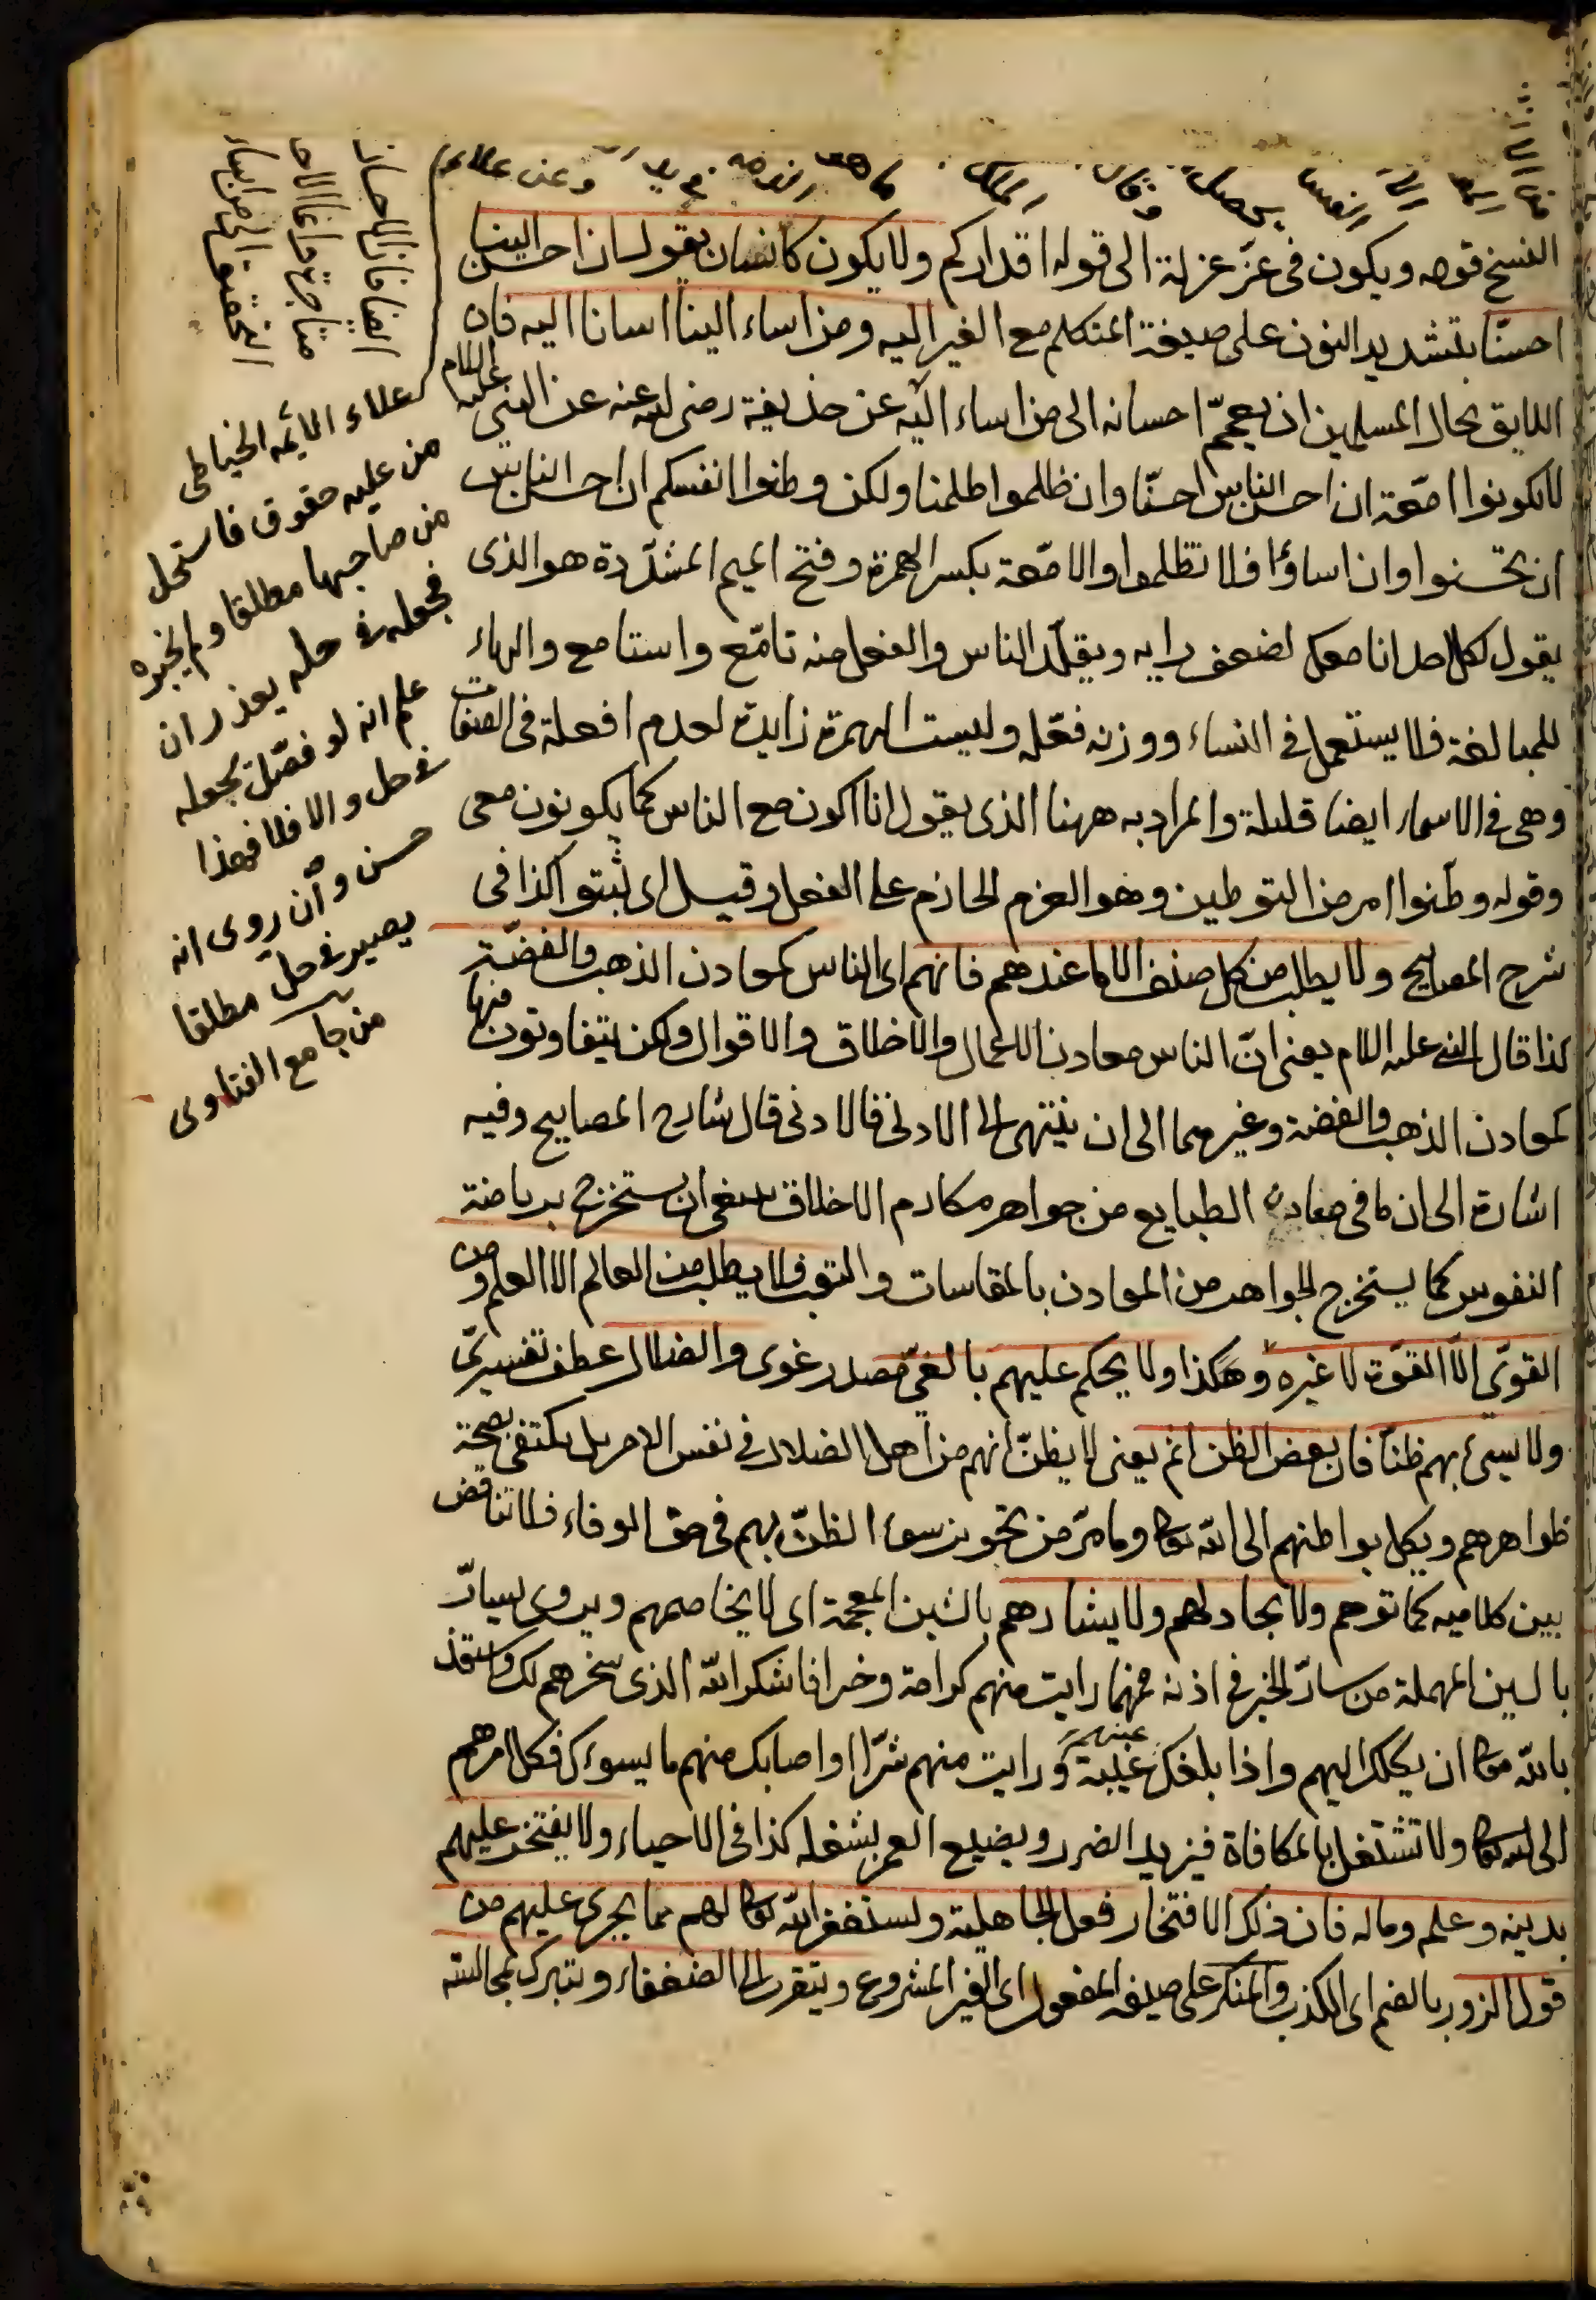 النسخ قوله ويكون فى عزّ عزلة الى قوله اقداركم ولا يكون كانسان يقول ان احسن الينا
احسنّا بتشديد النون على صيغة المتكلم مع الغير اليه ومن اساء الينا اسانا اليه فان
اللايق بحال المسلمين ان يعمّ احسانه الى من اساء اليه عن حذيفة رضى الله عنه عن النبى عليه السلام
لا تكونوا امّعة ان احسن الناس احسنّا وان ظلموا ظلمنا ولكن وطنوا انفسكم ان احسن الناس
ان تحسنوا وان اساؤا فلا تظلموا والامّعة بكسر الهمزة وفتح الميم المشدّدة هو الذى
يقول لكل احد انا معك لضعف رايه ويقلّد الناس والفعل منه تامّع واستامع والهاء
للمبالغة فلا يستعمل فى النساء ووزنه فعّلة وليست الهمزة زايدة لعدم افعلة فى الصفات
وهى فى الاسماء ايضا قليلة والمراد به ههنا الذى يقول انا اكون مع الناس كما يكونون معى
وقوله وطّنوا امر من التوطين وهو العزم الجازم على الفعل وقيل اى ثبتوا كذا فى
شرح المصابيح ولا يطلب من كل صنف الا ما عندهم فانهم اى الناس كمعادن الذهب والفضّة
كذا قال النبى عليه السلام يعنى انّ الناس معادن الاعمال والاخلاق والاقوال ولكن يتفاوتون فيها
كمعادن الذهب والفضة وغيرهما الى ان ينتهى الى الادنى فالادنى قال شارح المصابيح وفيه
اشارة الى ان ما فى معادن الطبايع من جواهر مكارم الاخلاق ينبغى ان يستخرج برياضة
النفوس كما يستخرج الجواهر من المعادن بالمقاسات والتعب فلا يطلب من العالم الا العلم ومن
القوىّ الّا القوّة لا غيره وهكذا ولا يحكم عليهم بالغىّ مصدر غوى والضلال عطف تفسيرىّ
ولا يسئ بهم ظنّا فان بعض الظن اثم يعنى لا يظنّ انهم من اهل الضلال فى نفس الامر بل يكتفى بصحة
ظواهرهم ويكل بواطنهم الى الله تعالى وما مرّ من تجويز سوء الظنّ بهم فى حق الوفاء فلا تناقض
بين كلاميه كما توهم ولا يجادلهم ولا يشارهم بالشين المعجمة اى لا يخاصمهم ويروى يسارّ
بالسين المهملة من سارّ الخبر فى اذنه فمهما رايت منهم كرامة وخيرا فاشكر الله الذى سخرهم لك واستعذ
بالله تعالى ان يكلك اليهم واذا بلغك عنهم غيبة ورايت منهم شرّا او اصابك منهم ما يسوءك فكل امرهم
الى الله تعالى ولا تشتغل بالمكافاة فيزيد الضرر ويضيع العمر بشغله كذا فى الاحياء ولا يفتخر عليهم
بدينه وعلمه وماله فان ذلك الافتخار فعل الجاهلية ويستغفر الله تعالى لهم مما يجرى عليهم من
قول الزور بالضم اى الكذب والمنكر على صيغة المفعول اى الغير المشروع ويتقرب الى الضعفاء ويتبرك بمجالسته
وعن علاء
علاء الائمه الخياطى
من عليه حقوق فاستحل
من صاحبها مطلقا ولم يخبره
فجعله فى حله يعذر ان
علم انه لو فصّل يجعله
فى حل والا فلا فهذا
حسن وان روى انه
يصير فى حل مطلقا
من جامع الفتاوى